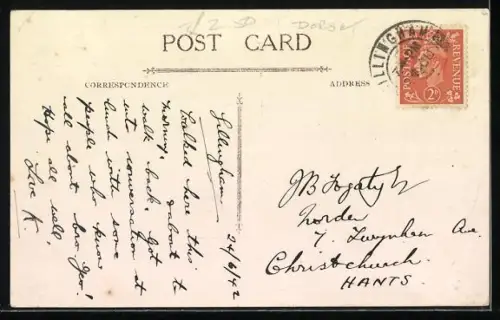 £2.50 DORSET
POST CARD
CORRESPONDENCE
ADDRESS
GILLINGHAM
POSTAGE REVENUE
2D
Gillingham 24/6/42
Walked here this
morning, & about to
walk back. Got
into conversation at
lunch with some
people who know
all about
Hope all well,
Love K.
J B Fogaty
7, Twynham Ave
Christchurch.
HANTS.